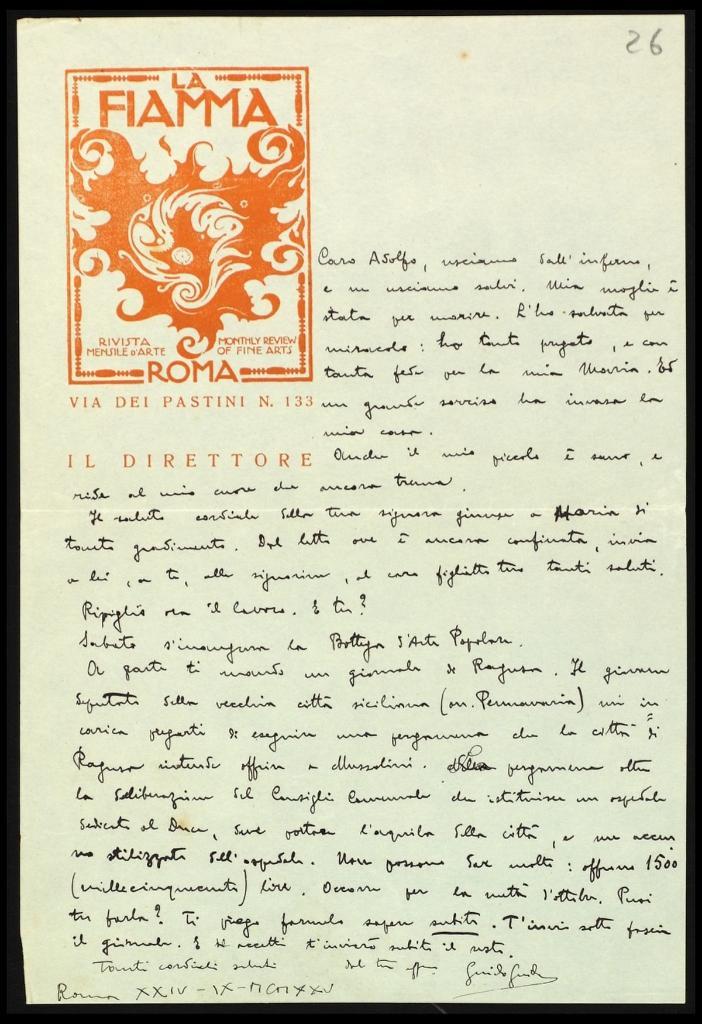 26
LA
FIAMMA
RIVISTA
MENSILE D'ARTE
MONTHLY REVIEW
OF FINE ARTS
ROMA
VIA DEI PASTINI N. 133
IL DIRETTORE
Caro Adolfo, usciamo dall'inferno,
e ne usciamo salvi. Mia moglie è
stata per morire. L'ho salvata per
miracolo: ho tanto pregato, e con
tanta fede per la mia Maria. Ed
un grande sorriso ha invaso la
mia casa.
Anche il mio piccolo è sano, e
ride al mio cuore che ancora trema.
Il saluto cordiale della tua signora giunse a Maria di
tanto gradimento. Dal letto ove è ancora confinata, invia
a lei, a te, alle signorine, al caro figlietto tuo tanti saluti.
Ripiglio ora il lavoro. E tu?
Sabato s'inaugura la Bottega d'Arte Popolare.
A parte ti mando un giornale di Ragusa. Il giovane
deputato della vecchia città siciliana (on. Pennavaria) mi in
carica pregarti di eseguire una pergamena che la città di
Ragusa intende offrire a Mussolini. pergamena oltre
la deliberazione del Consiglio Comunale che istituisce un ospedale
dedicato al Duce, deve portare l'aquila della città, e un accen
no stilizzato dell'ospedale. Non possono dare molto: offrono 1500
(millecinquecento) lire. Occorre per la metà d'ottobre. Puoi
tu farla? Ti prego farmelo sapere subito. T'invio sotto fascia
il giornale. E se accetti t'invierò subito il resto.
Tanti cordiali saluti dal tuo aff. Guido Guida
Roma XXIV-IX-MCMXXV